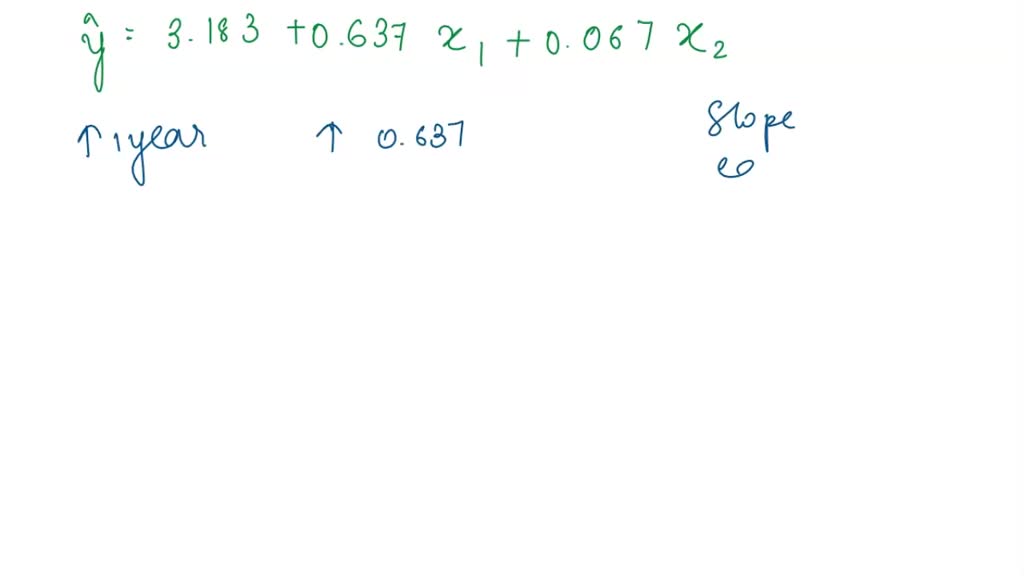 ŷ = 3.183 + 0.637 x₁ + 0.067 x₂
↑ 1 year ↑ 0.637 Slope
co